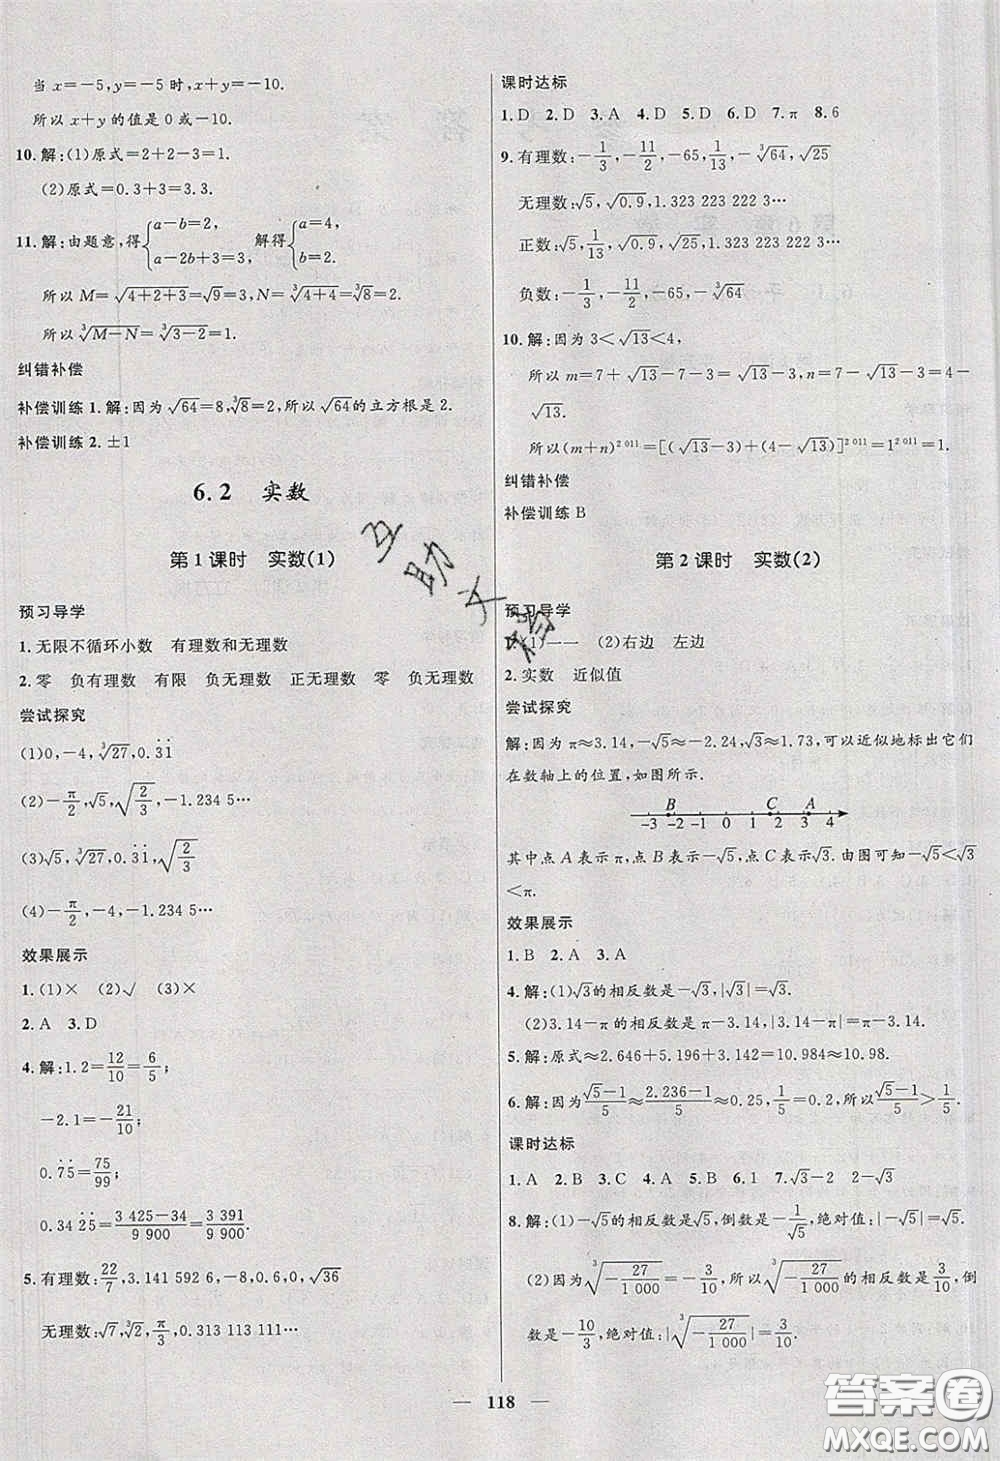 当 x=-5,y=-5 时,x+y=-10.
所以 x+y 的值是 0 或-10.
10. 解:(1)原式=2+2-3=1.
(2)原式=0.3+3=3.3.
11. 解:由题意,得{a-b=2, a-2b+3=3, 解得{a=4, b=2.
所以 M=√(4+2+3)=√9=3,N=∛(4+4)=∛8=2.
所以∛(M-N)=∛(3-2)=1.
纠错补偿
补偿训练 1. 解:因为√64=8,∛8=2,所以√64的立方根是 2.
补偿训练 2. ±1
6.2 实数
第 1 课时 实数(1)
预习导学
1. 无限不循环小数 有理数和无理数
2. 零 负有理数 有限 负无理数 正无理数 零 负无理数
尝试探究
(1)0,-4,∛27,0.3̇1̇
(2)-π/2,√5,√(2/3),-1.234 5…
(3)√5,∛27,0.3̇1̇,√(2/3)
(4)-π/2,-4,-1.234 5…
效果展示
1. (1)× (2)√ (3)×
2. A 3. D
4. 解:1.2=12/10=6/5;
-2.1=-21/10;
0.7̇5̇=75/99;
0.342̇5̇=(3 425-34)/9 900=3 391/9 900.
5. 有理数:22/7,3.141 592 6,-8,0.6,0,√36
无理数:√7,∛2,π/3,0.313 113 111…
课时达标
1. D 2. D 3. A 4. D 5. D 6. D 7. π 8. 6
9. 有理数:-1/3,-11/2,-65,1/13,-∛64,√25
无理数:√5,√0.9,1.323 223 222 3…
正数:√5,1/13,√0.9,√25,1.323 223 222 3…
负数:-1/3,-11/2,-65,-∛64
10. 解:因为 3<√13<4,
所以 m=7+√13-7-3=√13-3,n=7-√13-3=4-
√13.
所以(m+n)^2 011=[(√13-3)+(4-√13)]^2 011=1^2 011=1.
纠错补偿
补偿训练 B
第 2 课时 实数(2)
预习导学
1. (1)一一 (2)右边 左边
2. 实数 近似值
尝试探究
解:因为 π≈3.14,-√5≈-2.24,√3≈1.73,可以近似地标出它们
在数轴上的位置,如图所示.
B C A
-3 -2 -1 0 1 2 3 4
其中点 A 表示 π,点 B 表示-√5,点 C 表示√3. 由图可知-√5<√3
<π.
效果展示
1. B 2. A 3. A
4. 解:(1)√3的相反数是-√3,|√3|=√3.
(2)3.14-π的相反数是 π-3.14,|3.14-π|=π-3.14.
5. 解:原式≈2.646+5.196+3.142=10.984≈10.98.
6. 解:因为(√5-1)/5≈(2.236-1)/5≈0.25,1/5=0.2,所以(√5-1)/5>1/5.
课时达标
1. A 2. B 3. C 4. A 5. A 6. 1 7. √3-2 2-√3
8. 解:(1)-√5的相反数是√5,倒数是-1/√5,绝对值:|-√5|=√5.
(2)因为∛(-27/1 000)=-3/10,所以∛(-27/1 000)的相反数是3/10,倒
数是-10/3,绝对值:|∛(-27/1 000)|=3/10.
118
互助文档
答案圈
MXQE.COM